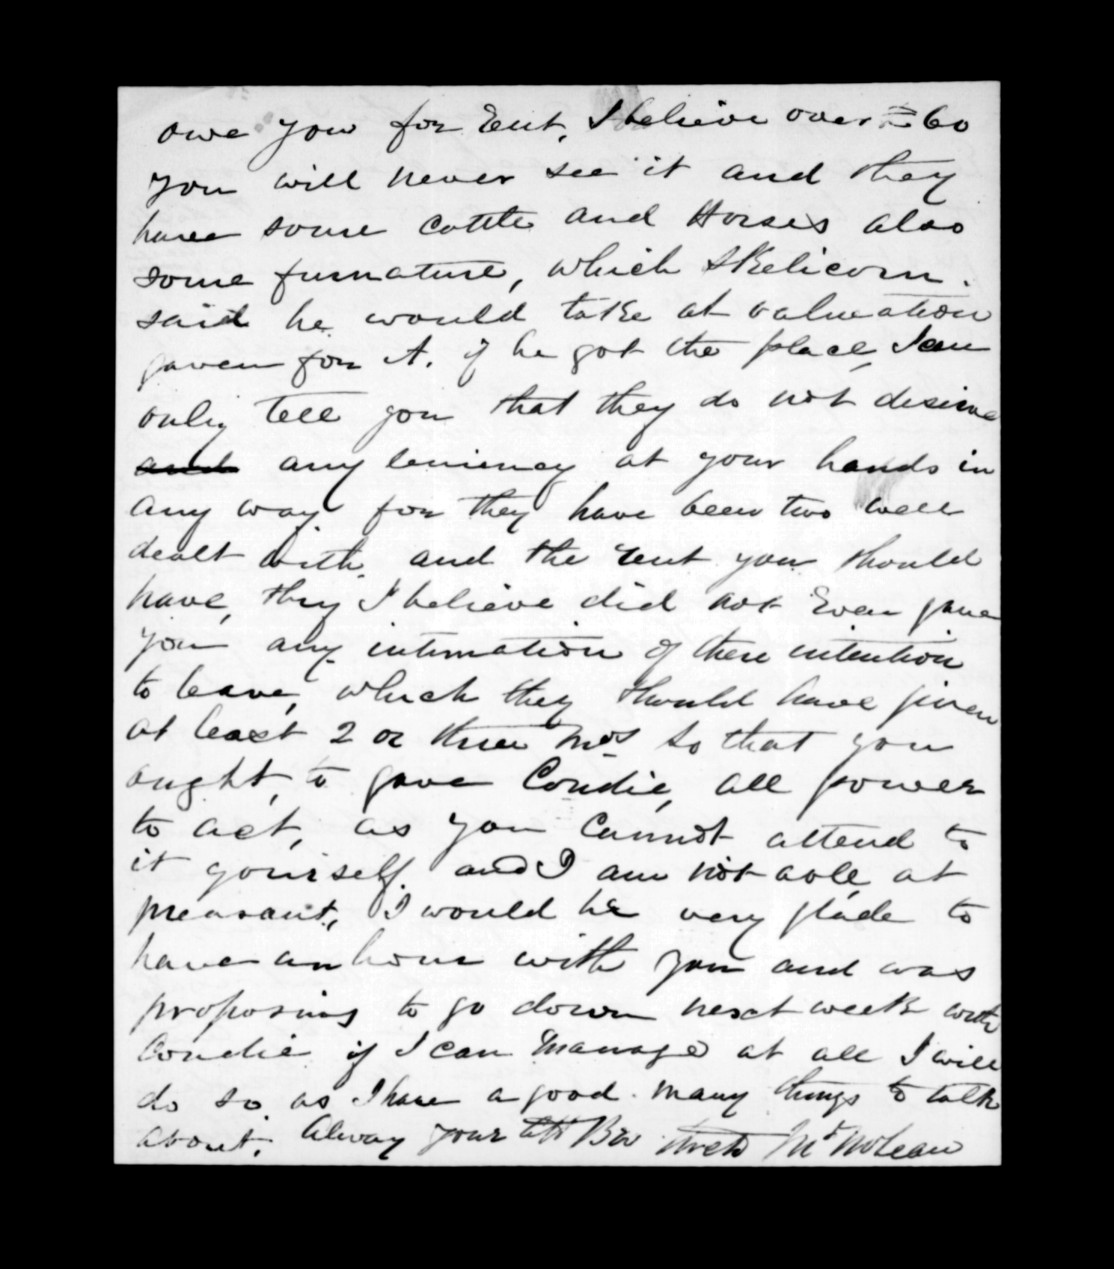 owe you for Rent, I believe over £60
you will never see it and they
have some cattle and Horses also
some furnature, which Skelicorn.
said he would take at valuation
gaven for it. if he got the place, I can
only tell you that they do not deserve
and any leniency at your hands in
any way for they have been two well
dealt with. and the rent you should
have, they I believe did not Even gave
you any intimation of there intention
to leave, which they should have given
at least 2 or three mos so that you
aught, to gave Condie, all power
to act, as you cannot attend to
it yourself. and I am not able, at
preasant, I would be very glade to
have an hour with you and was
proposing to go down next week with
Condie if I can manage at all I will
do so as I have a good many things to talk
about. Alway your Bro McLean